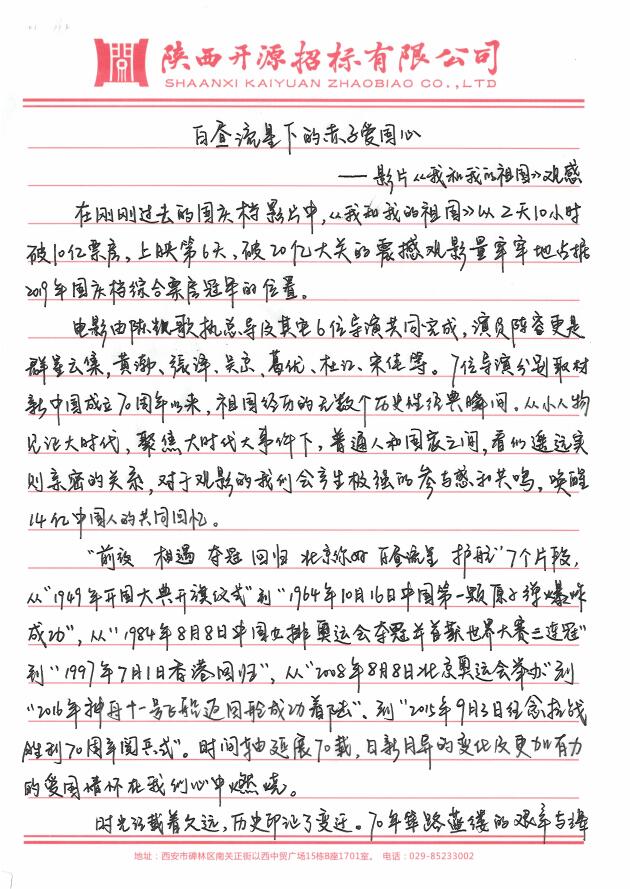 陕西开源招标有限公司
SHAANXI KAIYUAN ZHAOBIAO CO.,LTD
白昼流星下的赤子爱国心
——影片《我和我的祖国》观感
在刚刚过去的国庆档影片中,《我和我的祖国》以2天10小时
破10亿票房,上映第6天,破20亿大关的震撼观影量牢牢地占据
2019年国庆档综合票房冠军的位置。
电影由陈凯歌执总导及其它6位导演共同完成,演员阵容更是
群星云集,黄渤、张译、吴京、葛优、杜江、宋佳等。7位导演分别取材
新中国成立70周年以来,祖国经历的无数个历史性经典瞬间。从小人物
见证大时代,聚焦大时代大事件下,普通人和国家之间,看似遥远实
则亲密的关系,对于观影的我们会产生极强的参与感和共鸣,唤醒
14亿中国人的共同回忆。
“前夜 相遇 夺冠 回归 北京你好 白昼流星 护航”7个片段,
从“1949年开国大典升旗仪式”到“1964年10月16日中国第一颗原子弹爆炸
成功”,从“1984年8月8日中国女排奥运会夺冠并首获世界大赛三连冠”
到“1997年7月1日香港回归”,从“2008年8月8日北京奥运会举办”到
“2016年神舟十一号飞船返回舱成功着陆”、到“2015年9月3日纪念抗战
胜利70周年阅兵式”。时间轴延展70载,日新月异的变化及更加有力
的爱国情怀在我们心中燃烧。
时光记载着久远,历史印证了变迁。70年筚路蓝缕的艰辛与峥
地址:西安市碑林区南关正街以西中贸广场15栋B座1701室。 电话:029-85233002